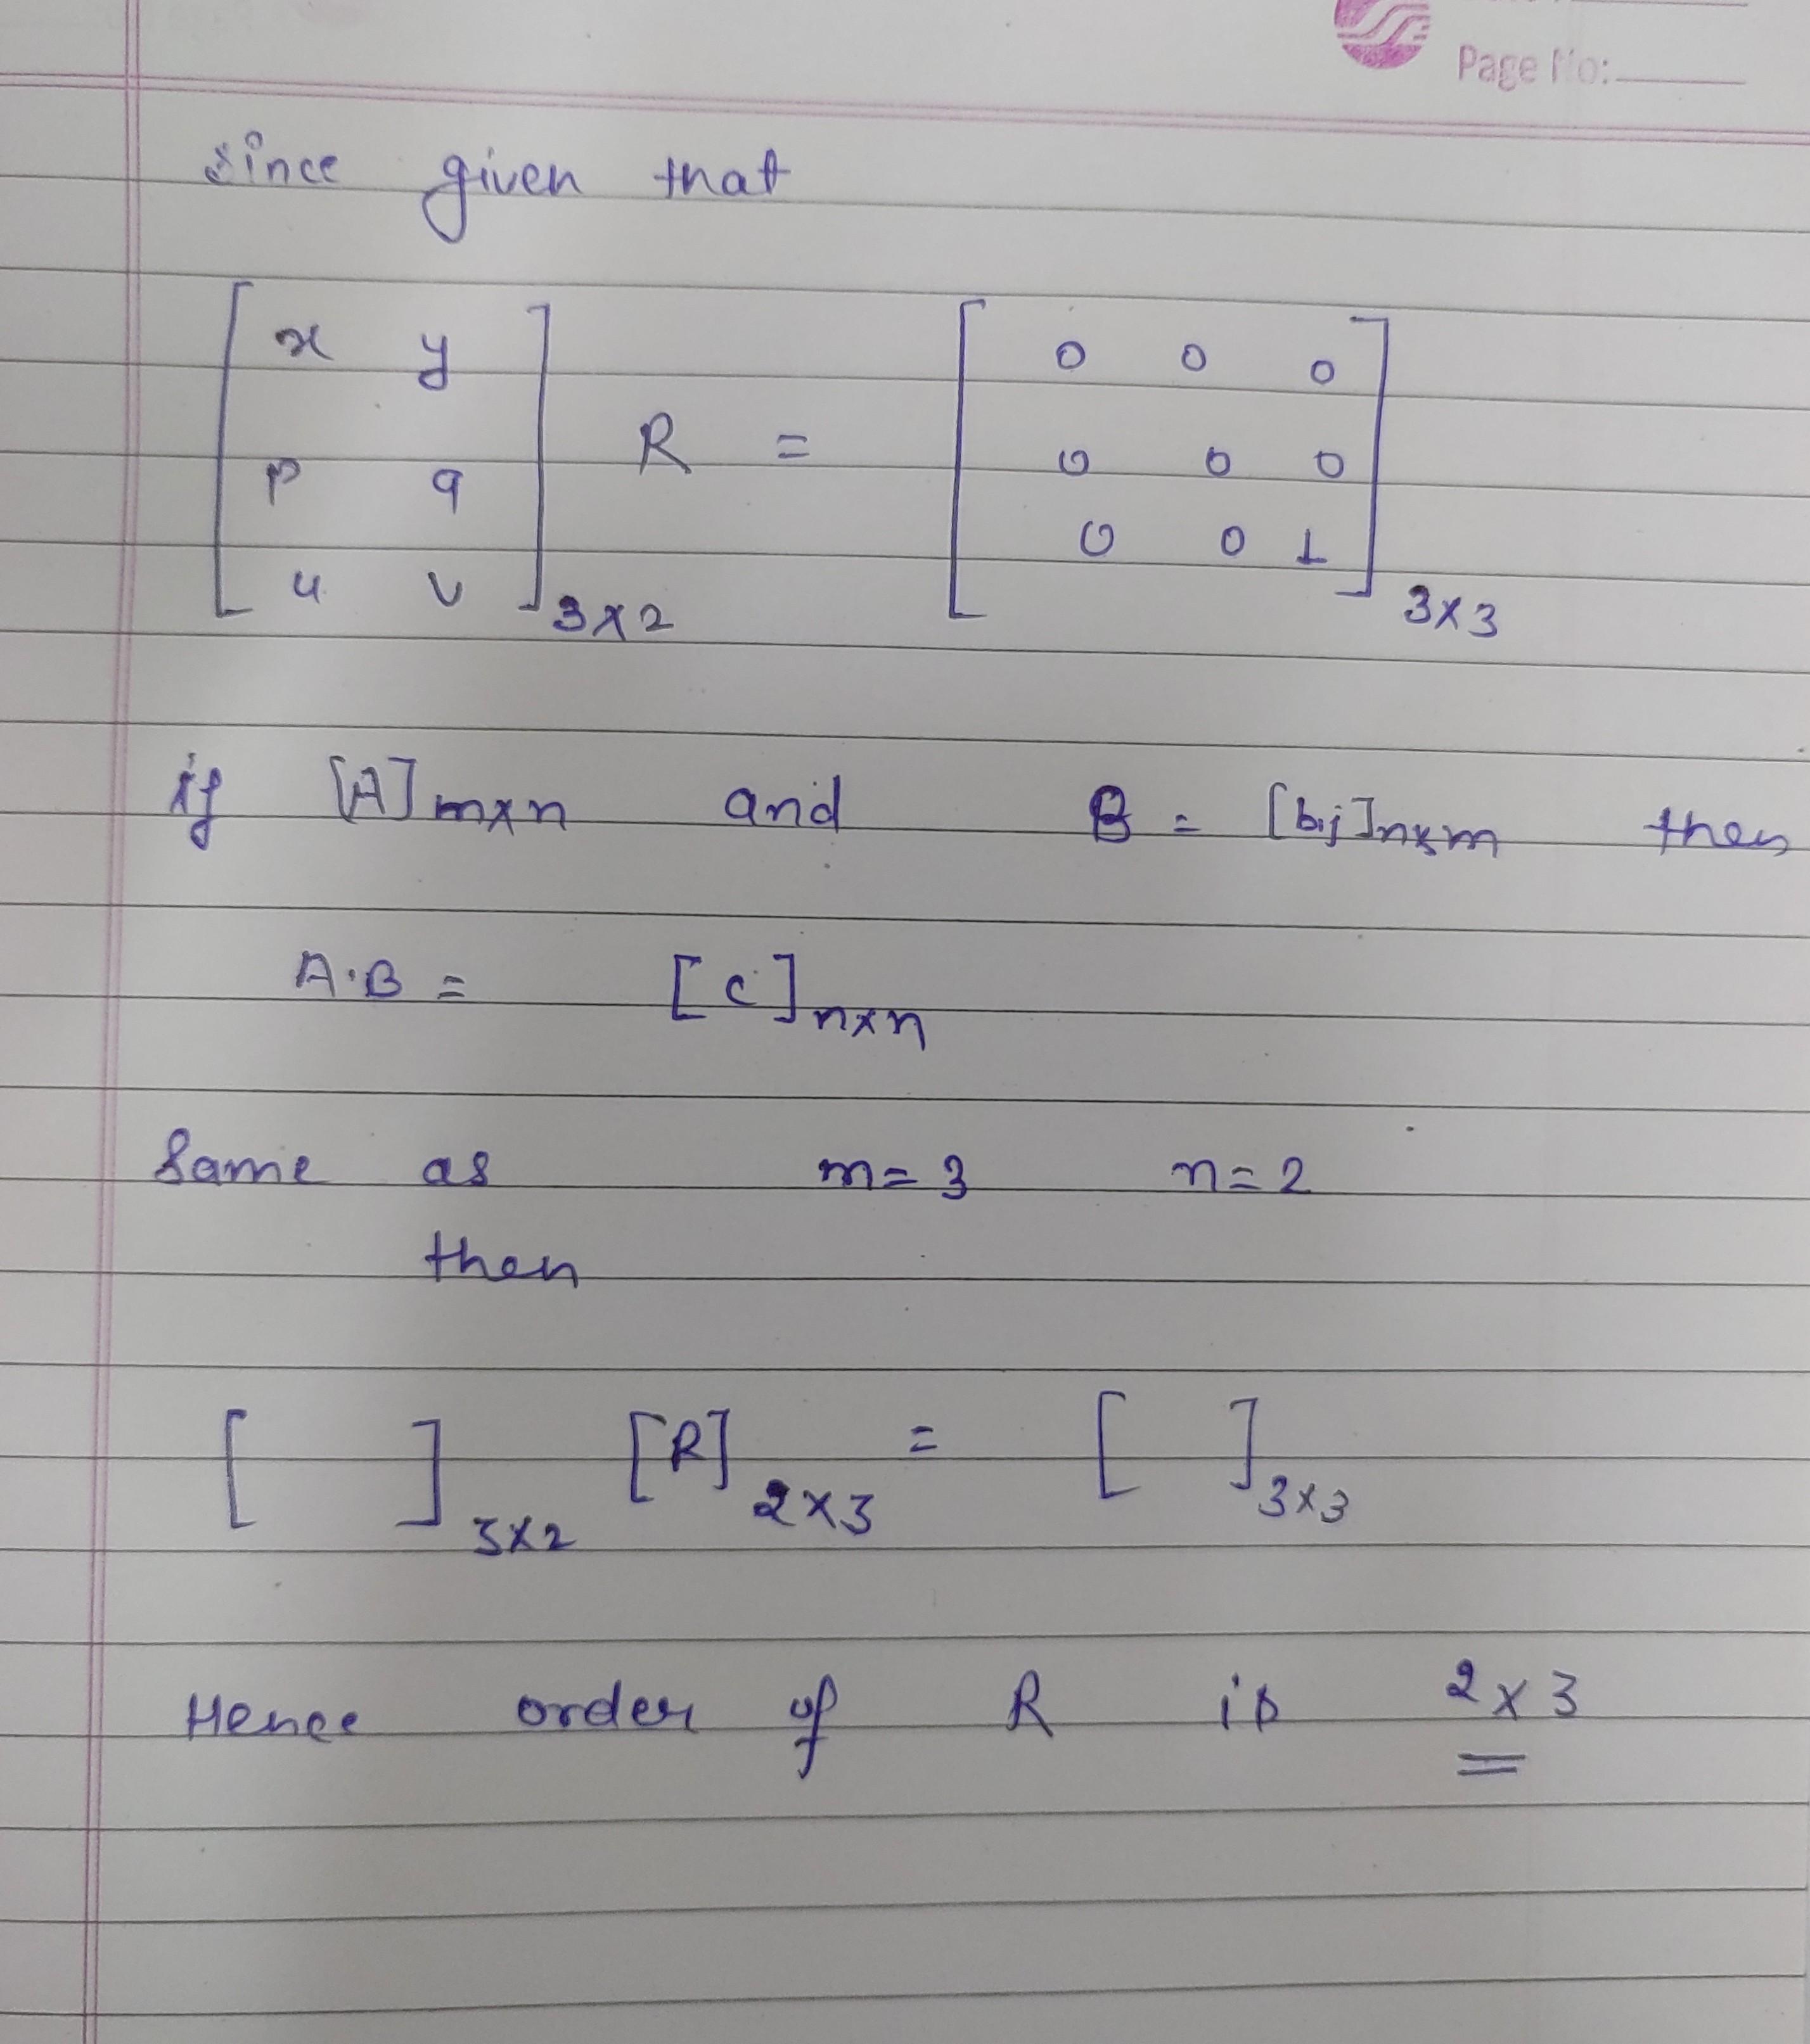 Page No:
since given that
[ x y ] [ 0 0 0 ]
[ p q ] R = [ 0 0 0 ]
[ u v ]3×2 [ 0 0 1 ]3×3
if [A]m×n and B = [bij]n×m then
A·B = [c]n×n
Same as m=3 n=2
then
[ ]3×2 [R]2×3 = [ ]3×3
Hence order of R is 2×3